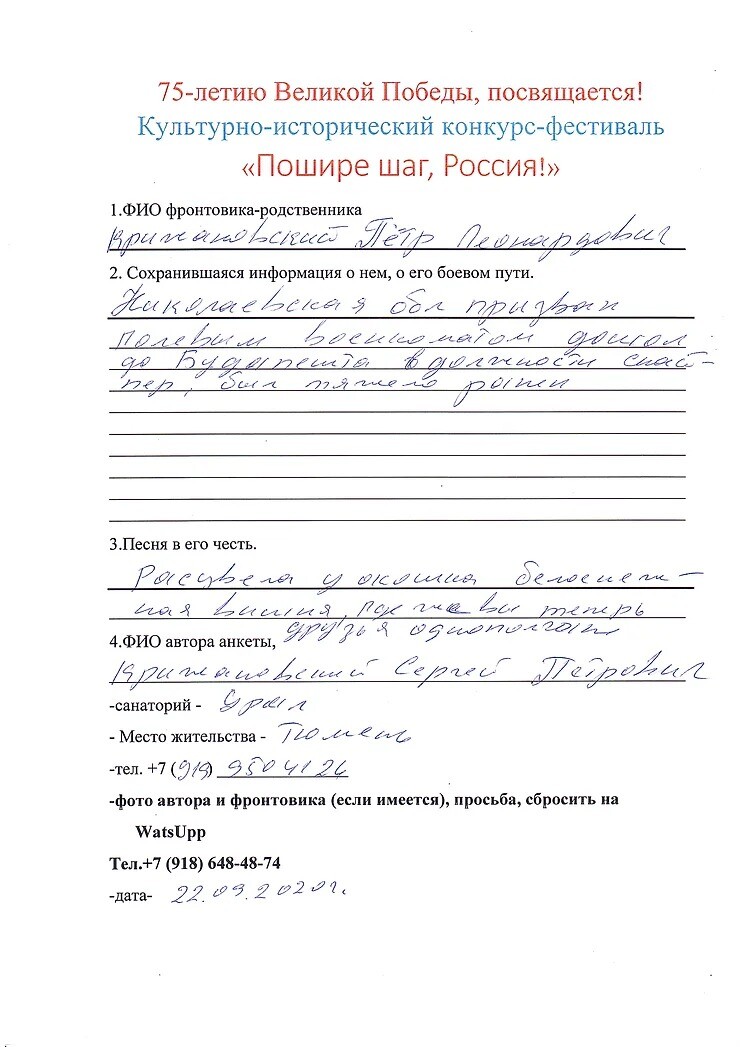 75-летию Великой Победы, посвящается!
Культурно-исторический конкурс-фестиваль
«Пошире шаг, Россия!»
1.ФИО фронтовика-родственника
Крижановский Пётр Леонардович
2. Сохранившаяся информация о нем, о его боевом пути.
Николаевская обл призван
полевым военкоматом дошол
до Будапешта в должности снай-
пер, был тяжело ранен
3.Песня в его честь.
Расцвела у окошка белоснеж-
ная вишня, где же вы теперь
друзья однополчане
4.ФИО автора анкеты,
Крижановский Сергей Петрович
-санаторий - Урал
- Место жительства - Тюмень
-тел. +7 (919) 9504126
-фото автора и фронтовика (если имеется), просьба, сбросить на
WatsUpp
Тел.+7 (918) 648-48-74
-дата- 22.09.2020г.